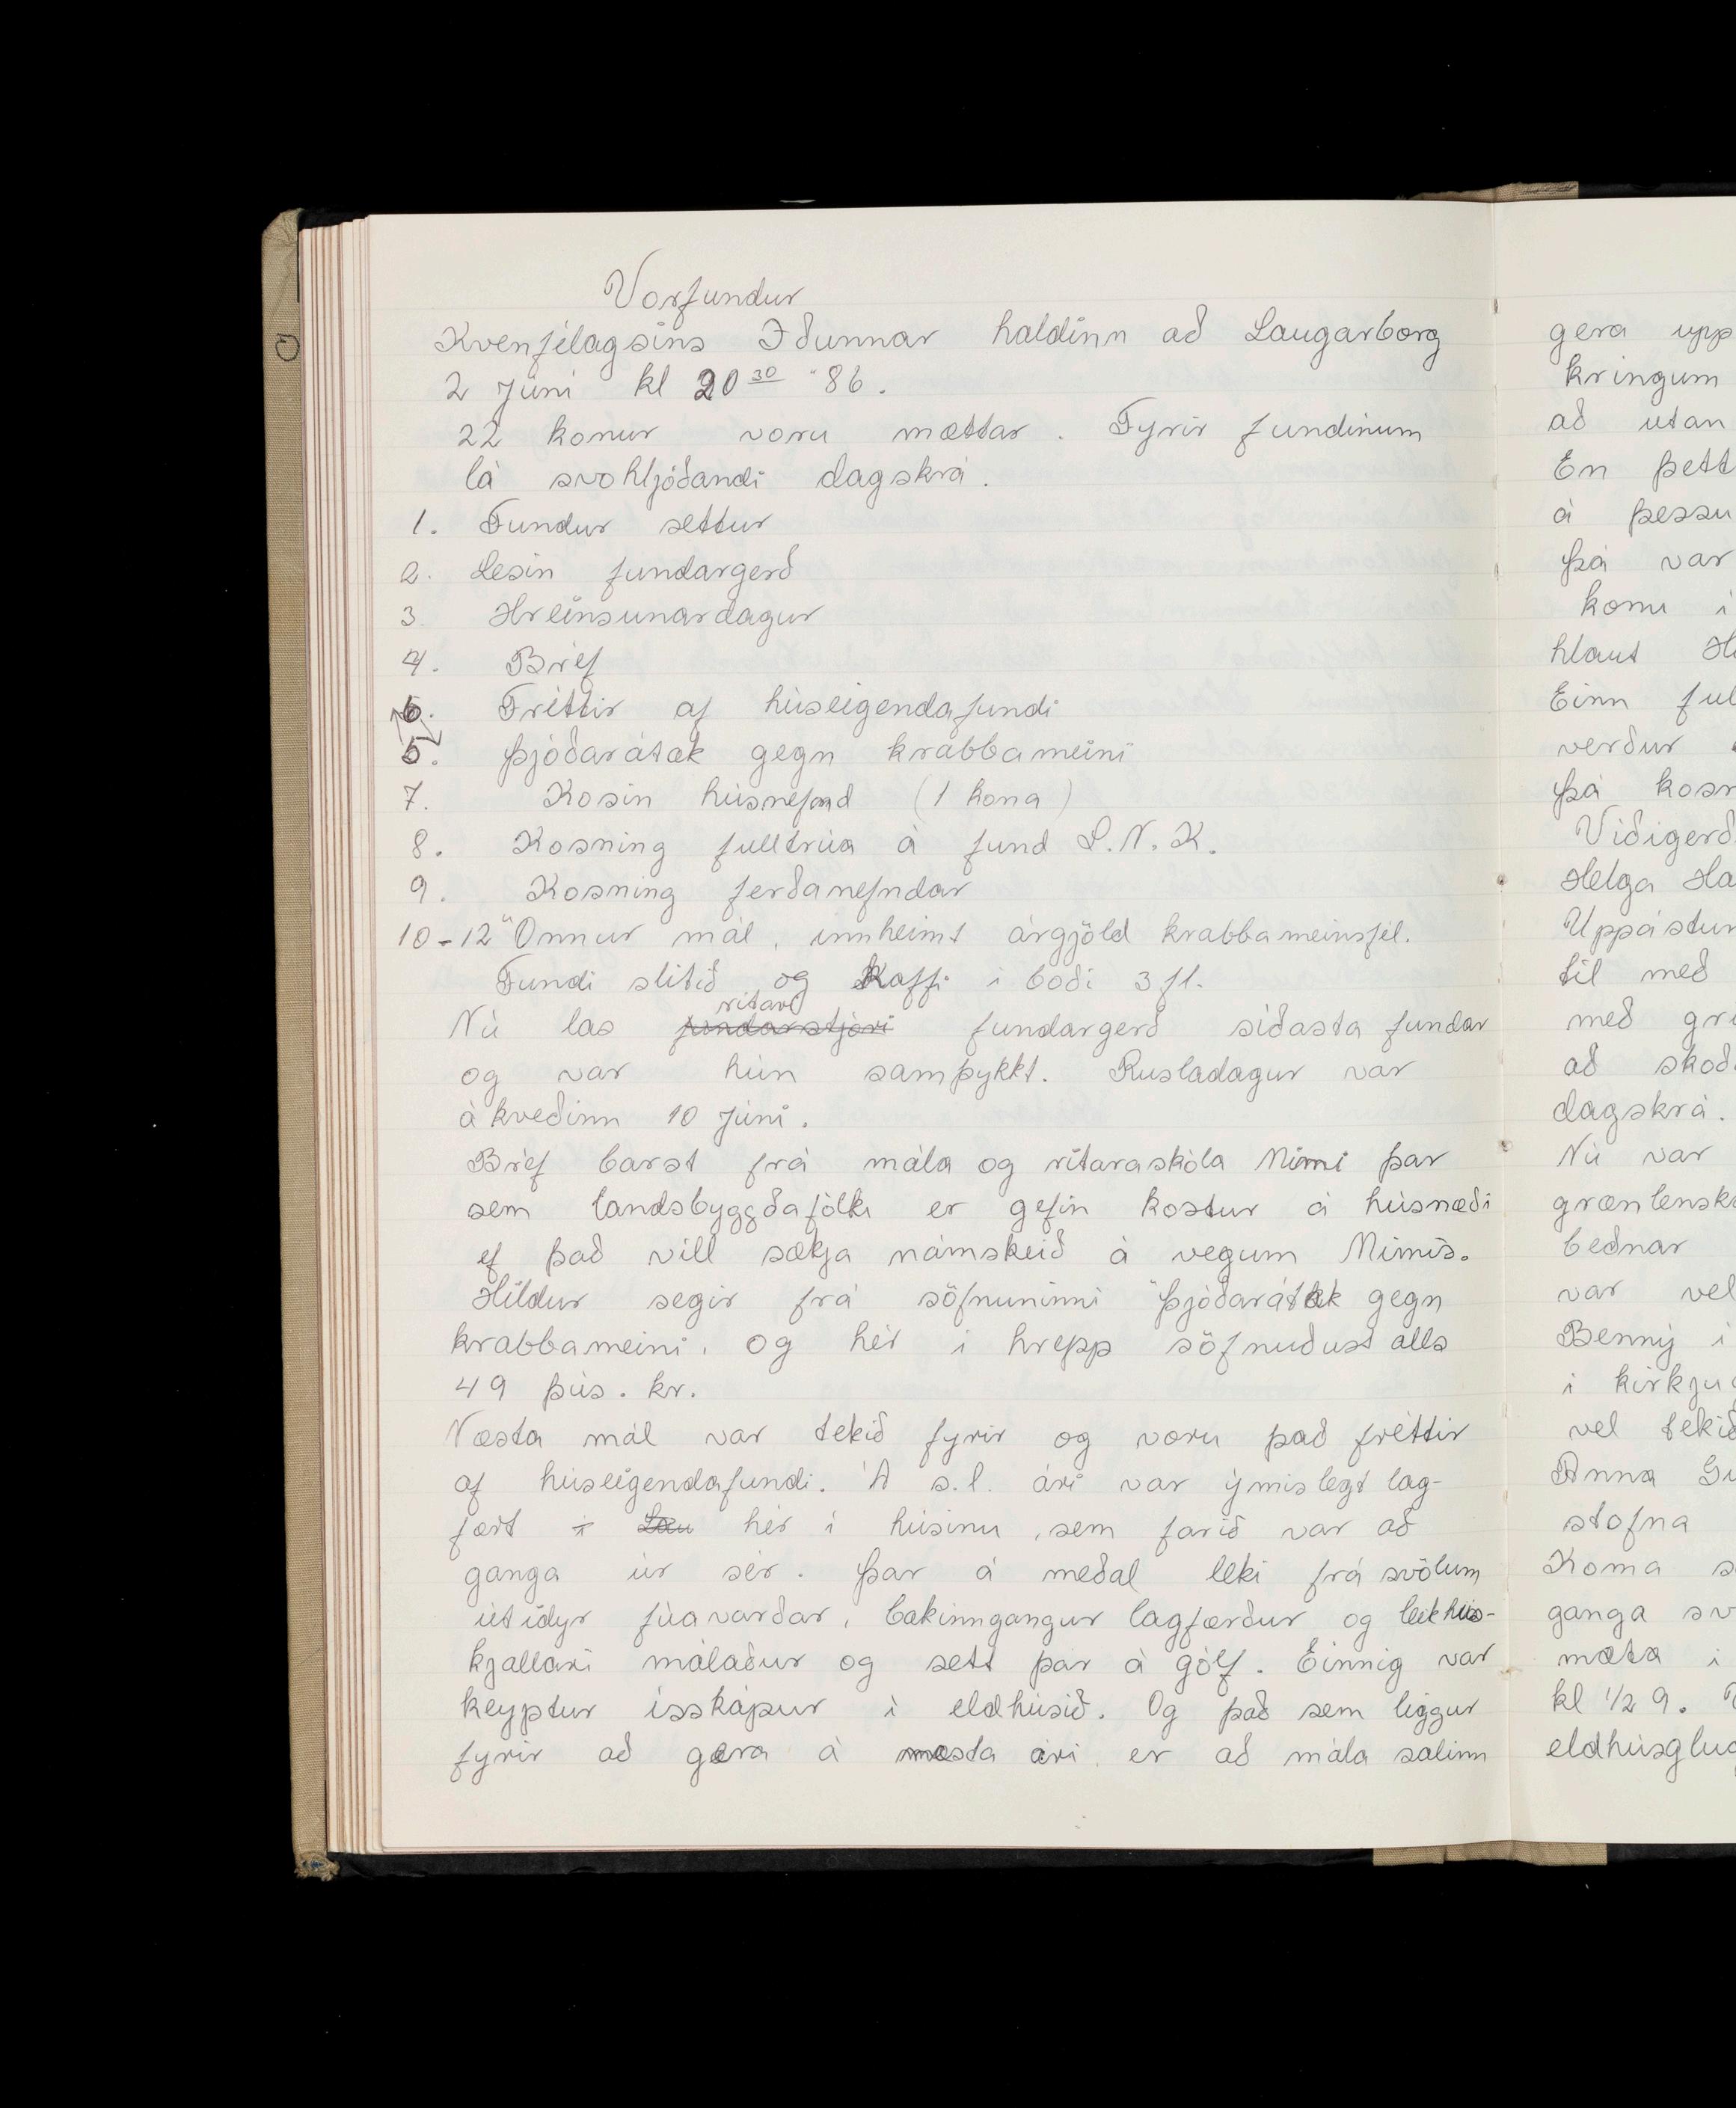 Vorfundur
Kvenfélagsins Iðunnar haldinn að Laugarborg
2 Júní kl 20 30 "86.
22 konur voru mættar. Fyrir fundinum
lá svohljóðandi dagskrá.
1. Fundur settur
2. Lesin fundargerð
3. Hreinsunardagur
4. Bréf
6. Fréttir af húseigendafundi
5. Þjóðarátak gegn krabbameini
7. Kosin húsnefnd (1 kona)
8. Kosning fulltrúa á fund S.N.K.
9. Kosning ferðanefndar
10-12 Önnur mál, innheimt árgjöld krabbameinsfél.
Fundi slitið og Kaffi í boði 3 fl.
ritari
Nú las fundarstjóri fundargerð síðasta fundar
og var hún samþykkt. Rusladagur var
ákveðinn 10 Júní.
Bréf barst frá mála og ritaraskóla Mími þar
sem landsbyggðafólki er gefin kostur á húsnæði
ef það vill sækja námskeið á vegum Mímis.
Hildur segir frá söfnuninni "Þjóðarátak gegn
krabbameini, og hér í hrepp söfnuðust alls
49 þús. kr.
Næsta mál var tekið fyrir og voru það fréttir
af húseigendafundi. Á s.l. ári var ýmislegt lag-
fært í Lau hér í húsinu, sem farið var að
ganga úr sér. Þar á meðal leki frá svölum
útidyr fúavarðar, bakinngangur lagfærður og leikhús-
kjallari málaður og sett þar á gólf. Einnig var
keyptur ísskápur í eldhúsið. Og það sem liggur
fyrir að gera á næsta ári er að mála salinn
gera upp
kringum
að utan
En þett
á þessu
Þá var
konu í
hlaut H
Einn ful
verður
Þá kosn
Víðigerð
Helga Ha
Uppástun
til með
með gr
að skoð
dagskrá.
Nú var
grænlensk
beðnar
var vel
Benný í
í kirkjug
vel tekið
Anna Gu
stofna
Koma s
ganga sv
mæta í
kl 1/2 9.
eldhúsglug